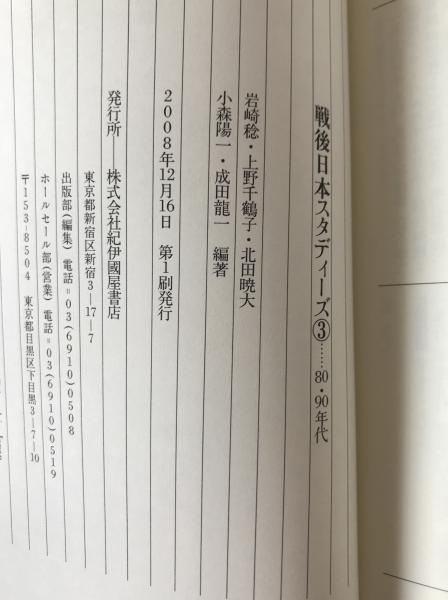 戦後日本スタディーズ③……80・90年代
岩崎稔・上野千鶴子・北田暁大
小森陽一・成田龍一 編著
2008年12月16日 第1刷発行
発行所──株式会社紀伊國屋書店
東京都新宿区新宿3─17─7
出版部(編集) 電話=03(6910)0508
ホールセール部(営業) 電話=03(6910)0519
〒153-8504 東京都目黒区下目黒3─7─10